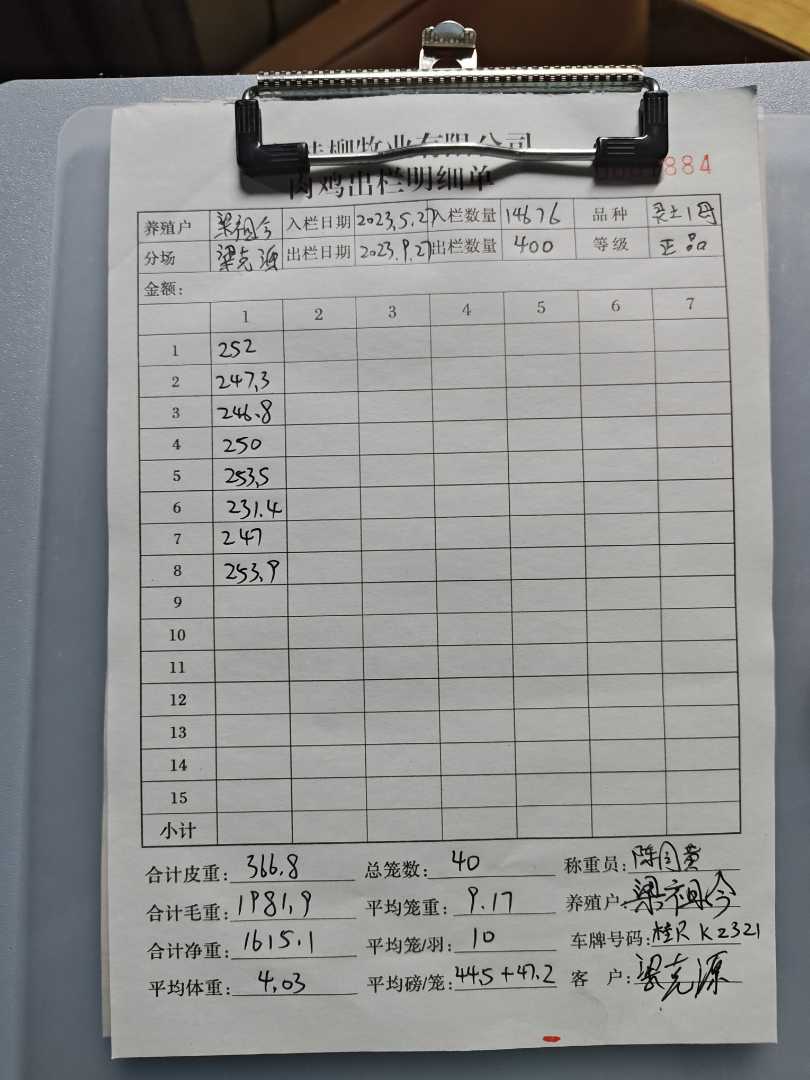 桂柳牧业有限公司
肉鸡出栏明细单 884
养殖户 梁祖今 入栏日期 2023.5.27 入栏数量 14676 品种
分场 梁克源 出栏日期 2023.9.27 出栏数量 400 等级 正品
金额:
1 2 3 4 5 6 7
1 252
2 247.3
3 246.8
4 250
5 253.5
6 231.4
7 247
8 253.9
9
10
11
12
13
14
15
小计
合计皮重: 366.8 总笼数: 40 称重员:
合计毛重: 1981.9 平均笼重: 9.17 养殖户: 梁祖今
合计净重: 1615.1 平均笼/羽: 10 车牌号码: 桂R K2321
平均体重: 4.03 平均磅/笼: 44.5+47.2 客 户: 梁克源